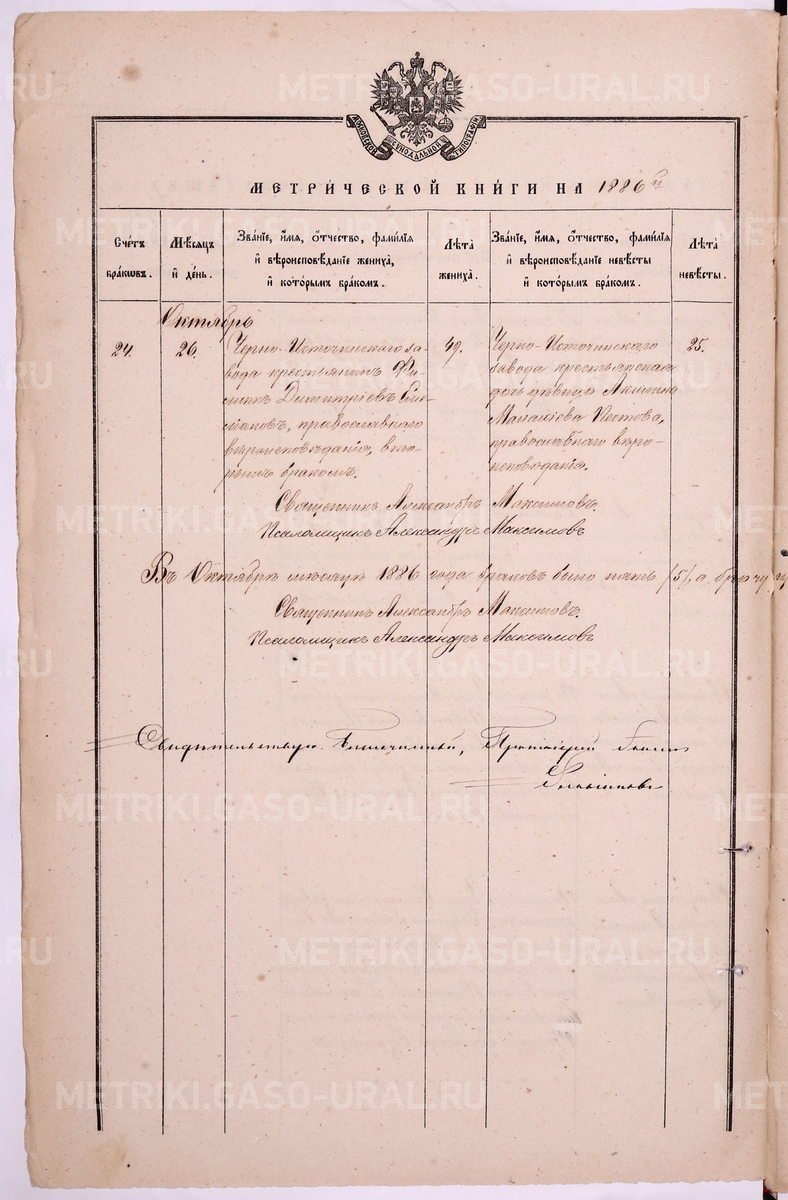 МОСКОВСКОЙ СѴНОДАЛЬНОЙ ТИПОГРАФІИ
МЕТРИ́ЧЕСКОЙ КНИ́ГИ НА 1886 й
Сче́тъ бра́кѡвъ.
Мѣ́сяцъ и҆ де́нь.
Зва́нїе, и҆́мя, ѻ҆́тчество, фами́лїя и҆ вѣроисповѣ́данїе жениха̀, и҆ кото́рымъ бра́комъ.
Лѣ́та жениха̀.
Зва́нїе, и҆́мя, ѻ҆́тчество, фами́лїя и҆ вѣроисповѣ́данїе невѣ́сты и҆ кото́рымъ бра́комъ.
Лѣ́та невѣ́сты.
Октябрь
24.
26.
Черно-Источинскаго за-
вода крестьянинъ Фи-
липпъ Димитріевъ
православнаго
вѣроисповѣданія, вто-
рымъ бракомъ.
49.
Черно-Источинскаго
завода крестьянская
дочь дѣвица Акилина
Пестова,
православнаго вѣро-
исповѣданія.
25.
Священникъ Александръ Максимовъ.
Псаломщикъ Александръ Максимовъ
Въ Октябрѣ мѣсяцѣ 1886 года браковъ было пять (5)
Священникъ Александръ Максимовъ.
Псаломщикъ Александръ Максимовъ
Свидѣтельствую. Благочинный, Протоіерей
METRIKI.GASO-URAL.RU